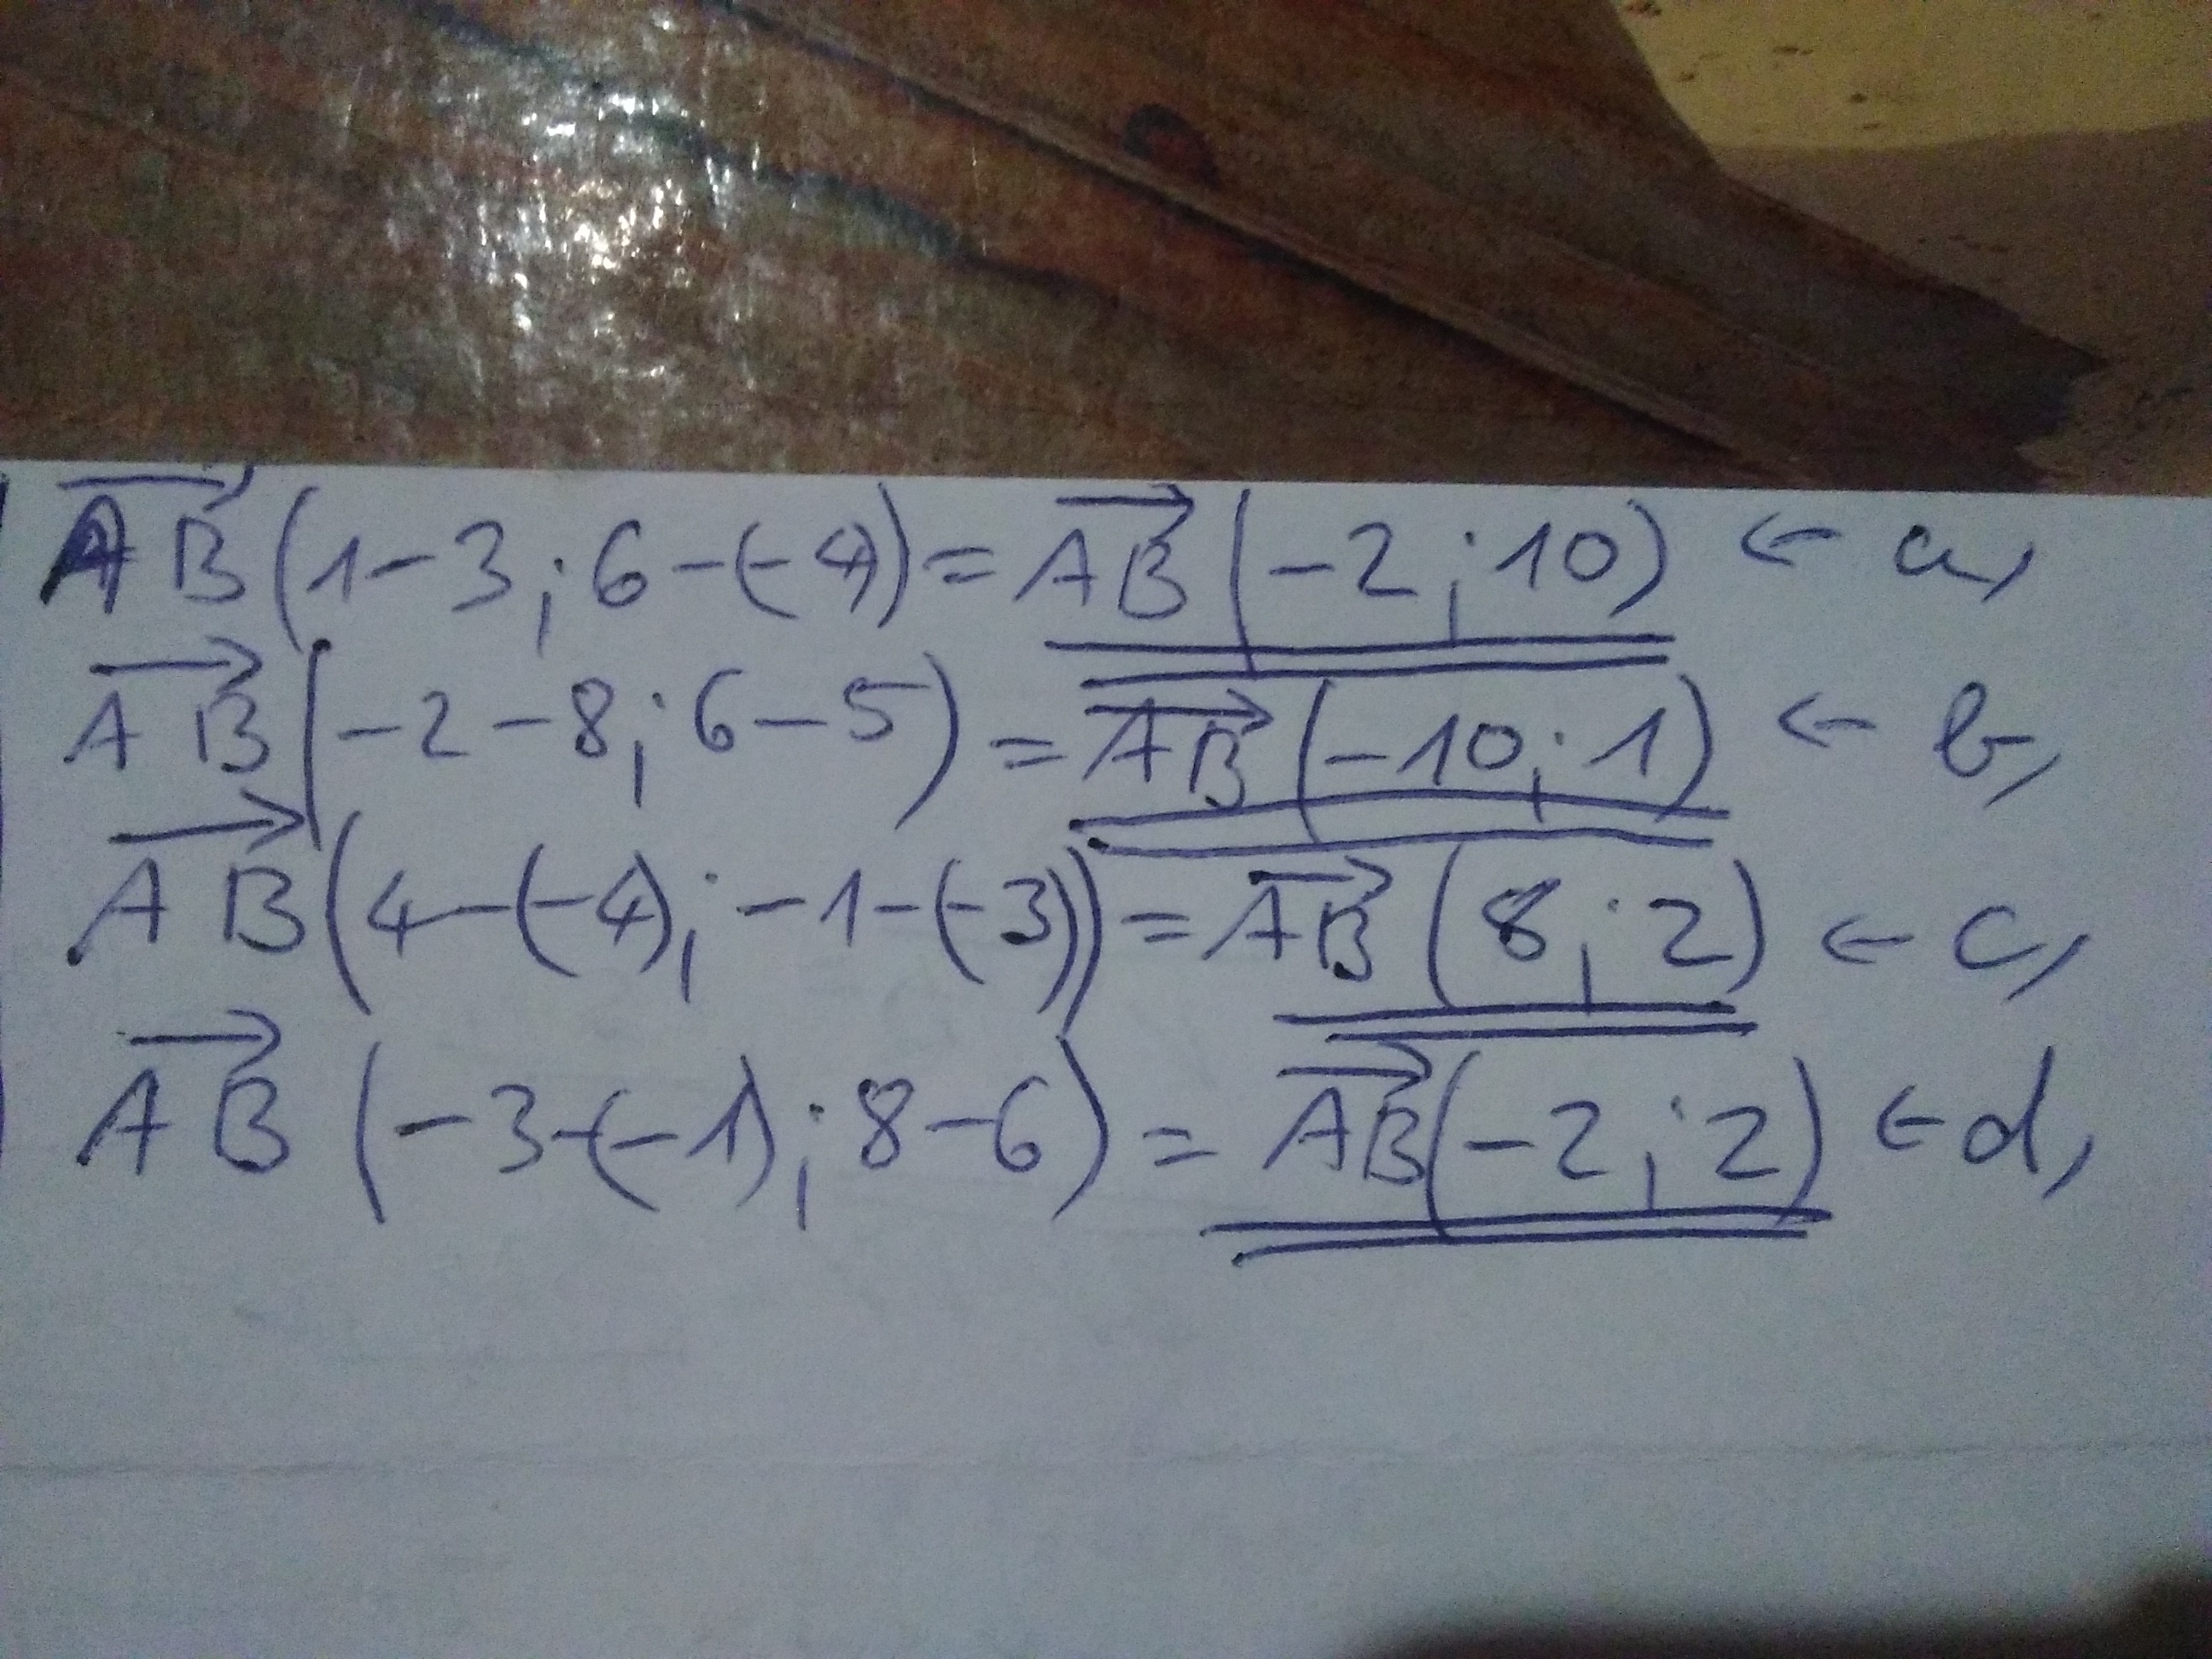 AB(1-3;6-(-4)=AB(-2;10) ← a,
AB(-2-8;6-5)=AB(-10;1) ← b,
AB(4-(-4);-1-(-3))=AB(8;2) ← c,
AB(-3-(-1);8-6)=AB(-2;2) ← d,